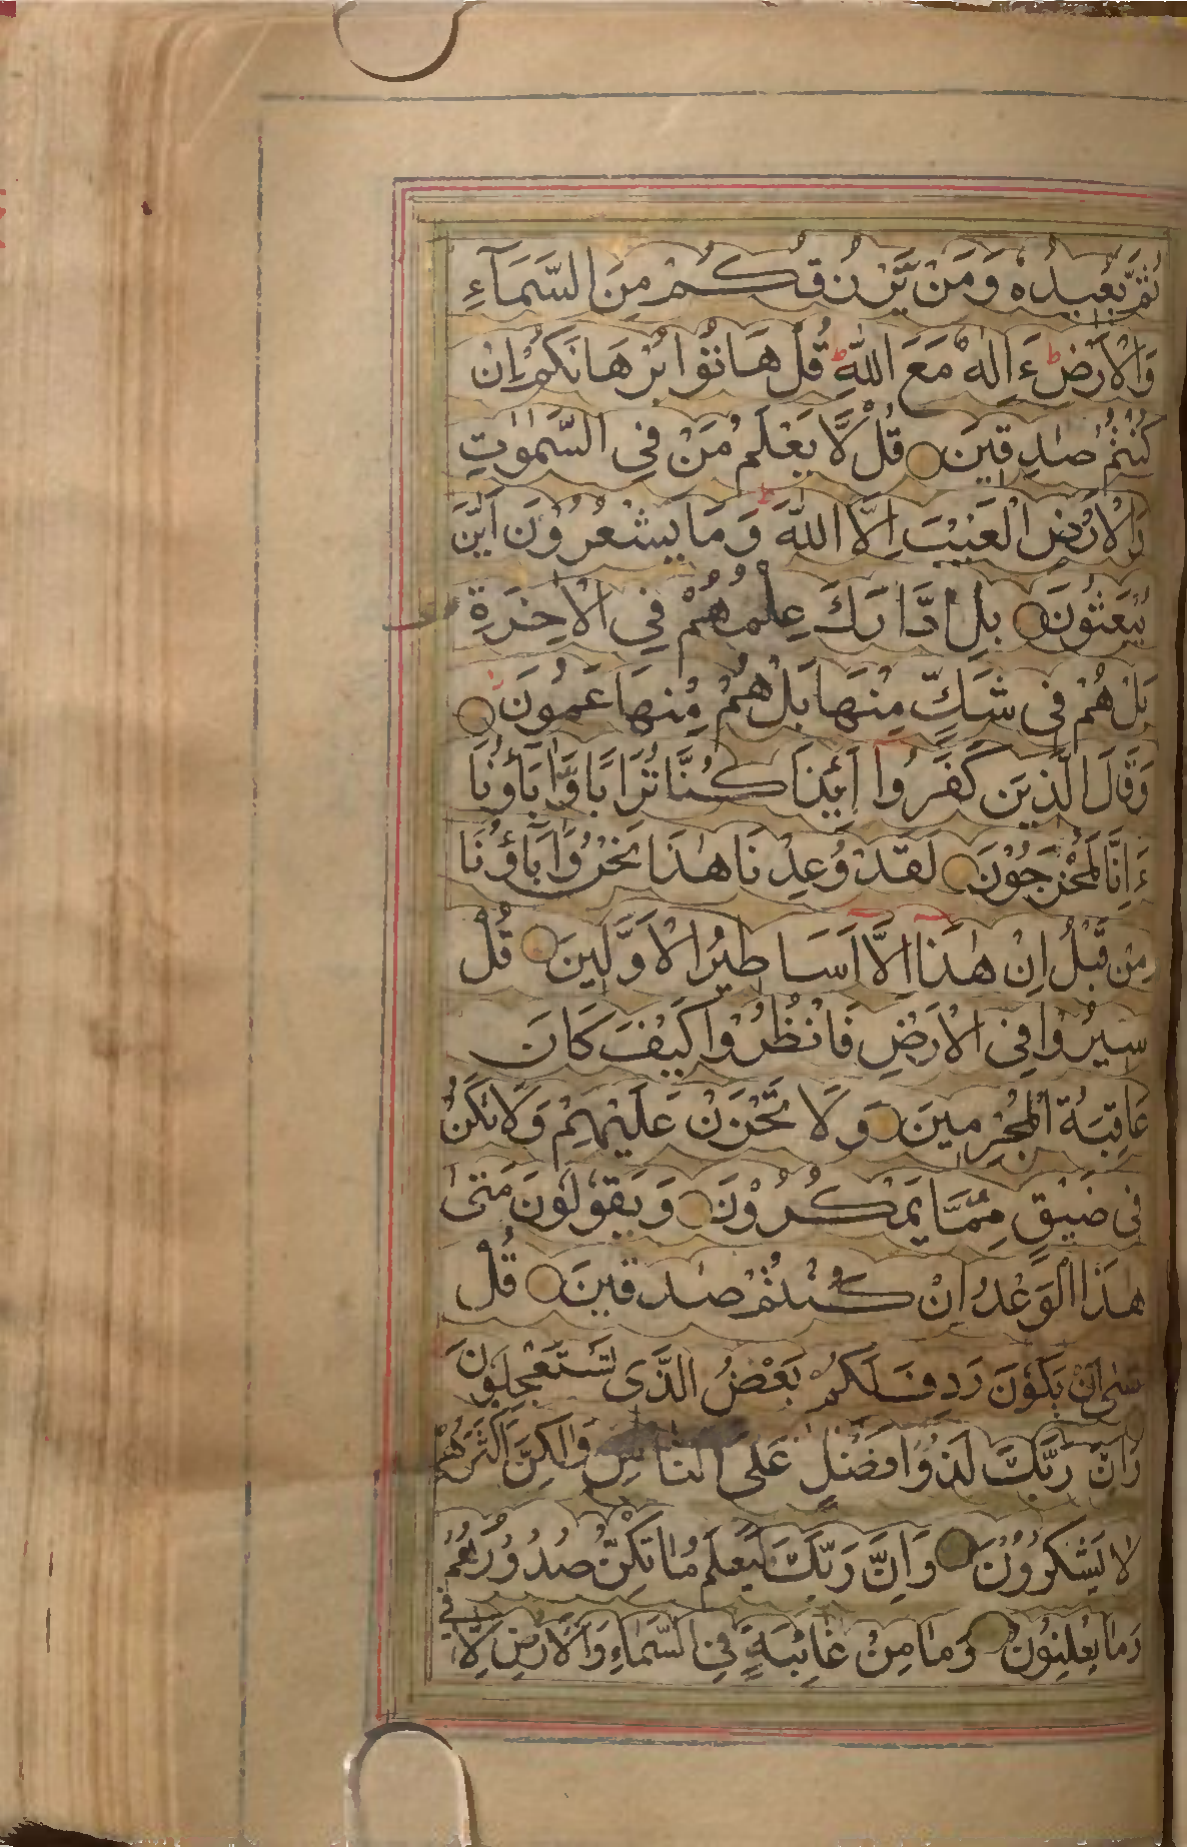 ثُمَّ يُعِيدُهٗ وَمَنْ يَّرْزُقُكُمْ مِنَ السَّمَآءِ
وَالْاَرْضِ ط ءَاِلٰهٌ مَعَ اللّٰهِ ط قُلْ هَاتُوْا بُرْهَانَكُمْ اِنْ
كُنْتُمْ صٰدِقِيْنَ قُلْ لَّا يَعْلَمُ مَنْ فِي السَّمٰوٰتِ
وَالْاَرْضِ الْغَيْبَ اِلَّا اللّٰهُ ط وَمَا يَشْعُرُوْنَ اَيَّانَ
يُبْعَثُوْنَ بَلِ ادّٰارَكَ عِلْمُهُمْ فِي الْاٰخِرَةِ
بَلْ هُمْ فِي شَكٍّ مِنْهَا بَلْ هُمْ مِنْهَا عَمُوْنَ
وَقَالَ الَّذِيْنَ كَفَرُوْا اَئِذَا كُنَّا تُرَابًا وَّاٰبَاؤُنَا
ءَاِنَّا لَمُخْرَجُوْنَ لَقَدْ وُعِدْنَا هٰذَا نَحْنُ وَاٰبَاؤُنَا
مِنْ قَبْلُ اِنْ هٰذَا اِلَّا اَسَاطِيْرُ الْاَوَّلِيْنَ قُلْ
سِيْرُوْا فِي الْاَرْضِ فَانْظُرُوْا كَيْفَ كَانَ
عَاقِبَةُ الْمُجْرِمِيْنَ وَلَا تَحْزَنْ عَلَيْهِمْ وَلَا تَكُنْ
فِي ضَيْقٍ مِّمَّا يَمْكُرُوْنَ وَيَقُوْلُوْنَ مَتٰى
هٰذَا الْوَعْدُ اِنْ كُنْتُمْ صٰدِقِيْنَ قُلْ
عَسٰى اَنْ يَكُوْنَ رَدِفَ لَكُمْ بَعْضُ الَّذِي تَسْتَعْجِلُوْنَ
وَاِنَّ رَبَّكَ لَذُوْا فَضْلٍ عَلَى النَّاسِ وَلٰكِنَّ اَكْثَرَهُمْ
لَا يَشْكُرُوْنَ وَاِنَّ رَبَّكَ لَيَعْلَمُ مَا تُكِنُّ صُدُوْرُهُمْ
وَمَا يُعْلِنُوْنَ وَمَا مِنْ غَائِبَةٍ فِي السَّمَاءِ وَالْاَرْضِ اِلَّا فِي